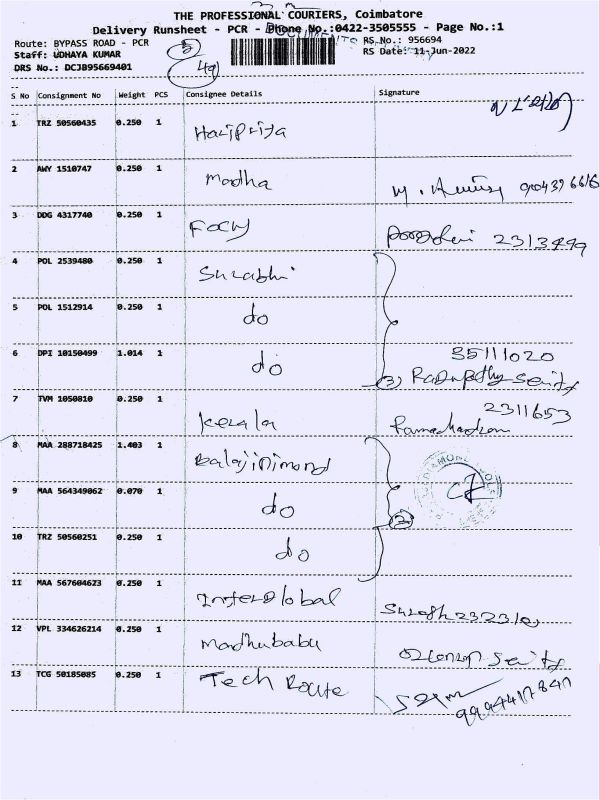 THE PROFESSIONAL COURIERS, Coimbatore
Delivery Runsheet - PCR - Phone No.:0422-3505555 - Page No.:1
Route: BYPASS ROAD - PCR
RS No.: 956694
Staff: UDHAYA KUMAR
RS Date: 11-Jun-2022
DRS No.: DCJB95669401
49
S No Consignment No Weight PCS Consignee Details Signature
1 TRZ 50560435 0.250 1 Haripriya
2 AWY 1510747 0.250 1 Madha
3 DDG 4317740 0.250 1 Focus 2313499
4 POL 2539480 0.250 1 Surabhi
5 POL 1512914 0.250 1 do
6 DPI 10150499 1.014 1 do 35111020
(3)
7 TVM 1050810 0.250 1 Kerala 2311653
8 MAA 288718425 1.403 1 Balaji Dimond
9 MAA 564349062 0.070 1 do
(2)
10 TRZ 50560251 0.250 1 do
11 MAA 567604623 0.250 1 Inter Global
12 VPL 334626214 0.250 1 Madhubabu
13 TCG 50185085 0.250 1 Tech Route
9994417847